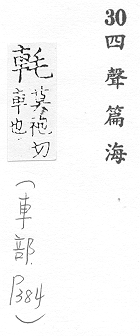 30四聲篇海
𨋍 莫袍切
車也
(車部 P384)